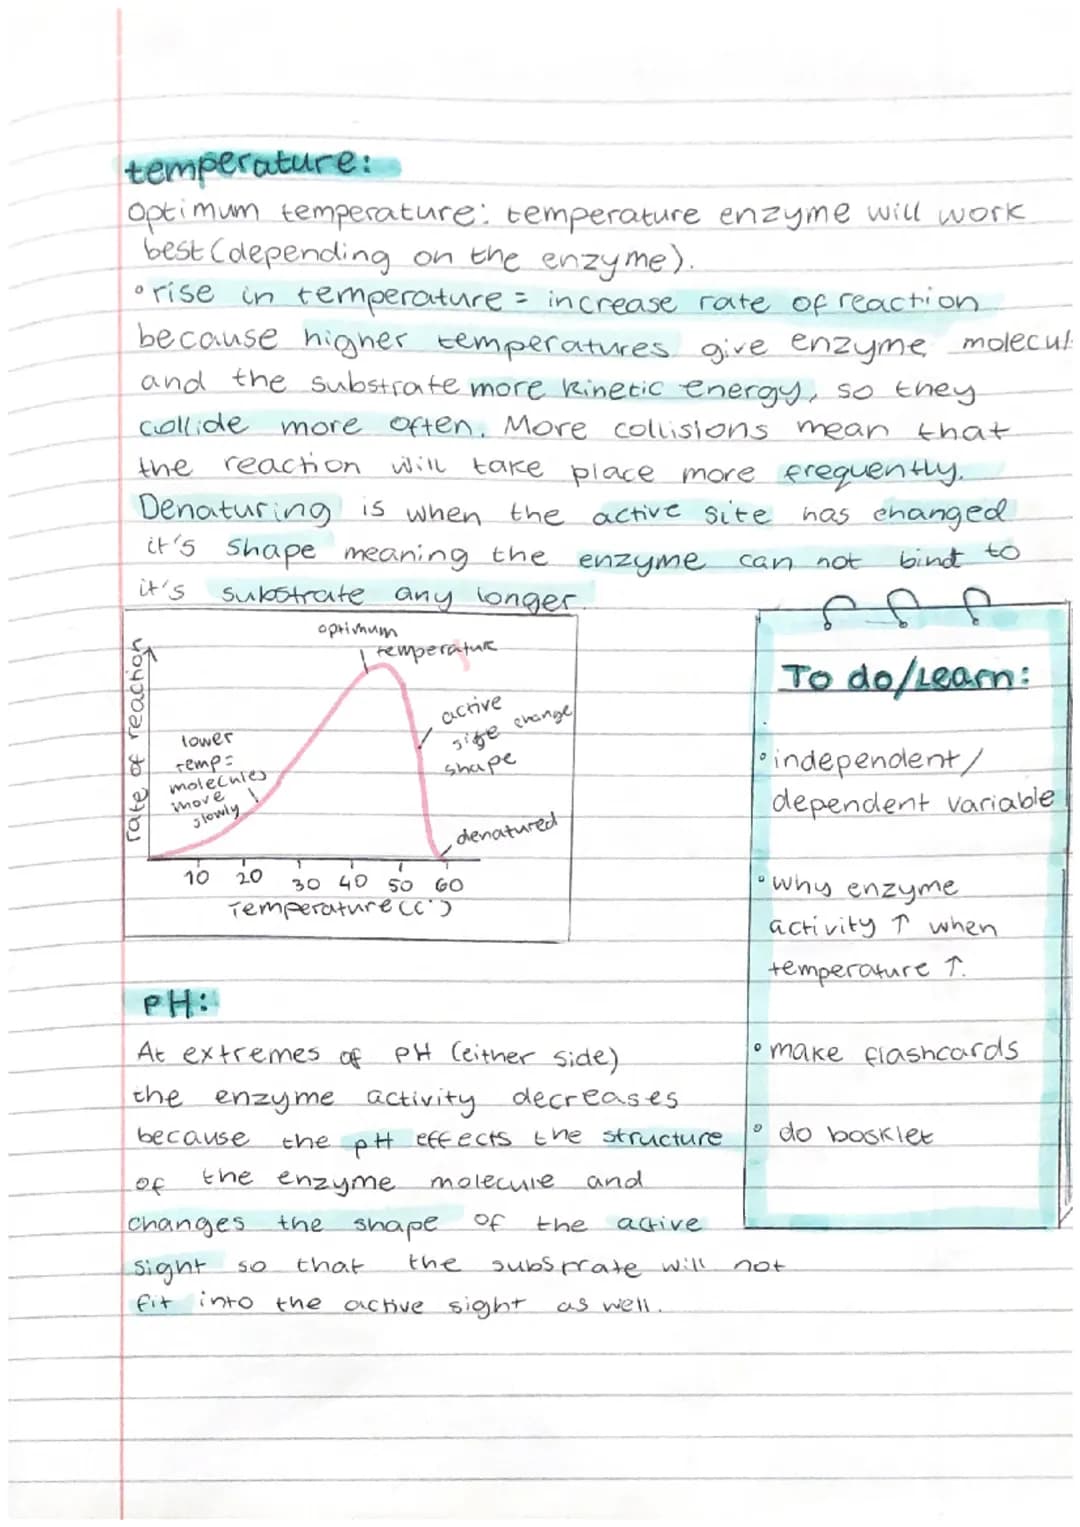 temperature:
Optimum temperature: temperature enzyme will work
best (depending on the enzyme).
• rise in temperature = increase rate of reaction
because higher temperatures give enzyme molecul
and the substrate more kinetic energy, so they
collide more often. More collisions mean that
the reaction will take place more frequently.
Denaturing is when the active site has changed
it's shape meaning the enzyme can not bind to
it's substrate any longer.
optimum
temperature
rate of reaction
lower
temp =
molecules
move
slowly
active
site change
shape
denatured
10 20 30 40 50 60
Temperature (c°)
To do/Learn:
• independent/
dependent variable
• why enzyme
activity ↑ when
temperature ↑.
• make flashcards
• do booklet
PH:
At extremes of PH (either side)
the enzyme activity decreases
because the pH effects the structure
of the enzyme molecule and
changes the shape of the active
sight so that the substrate will not
fit into the active sight as well.